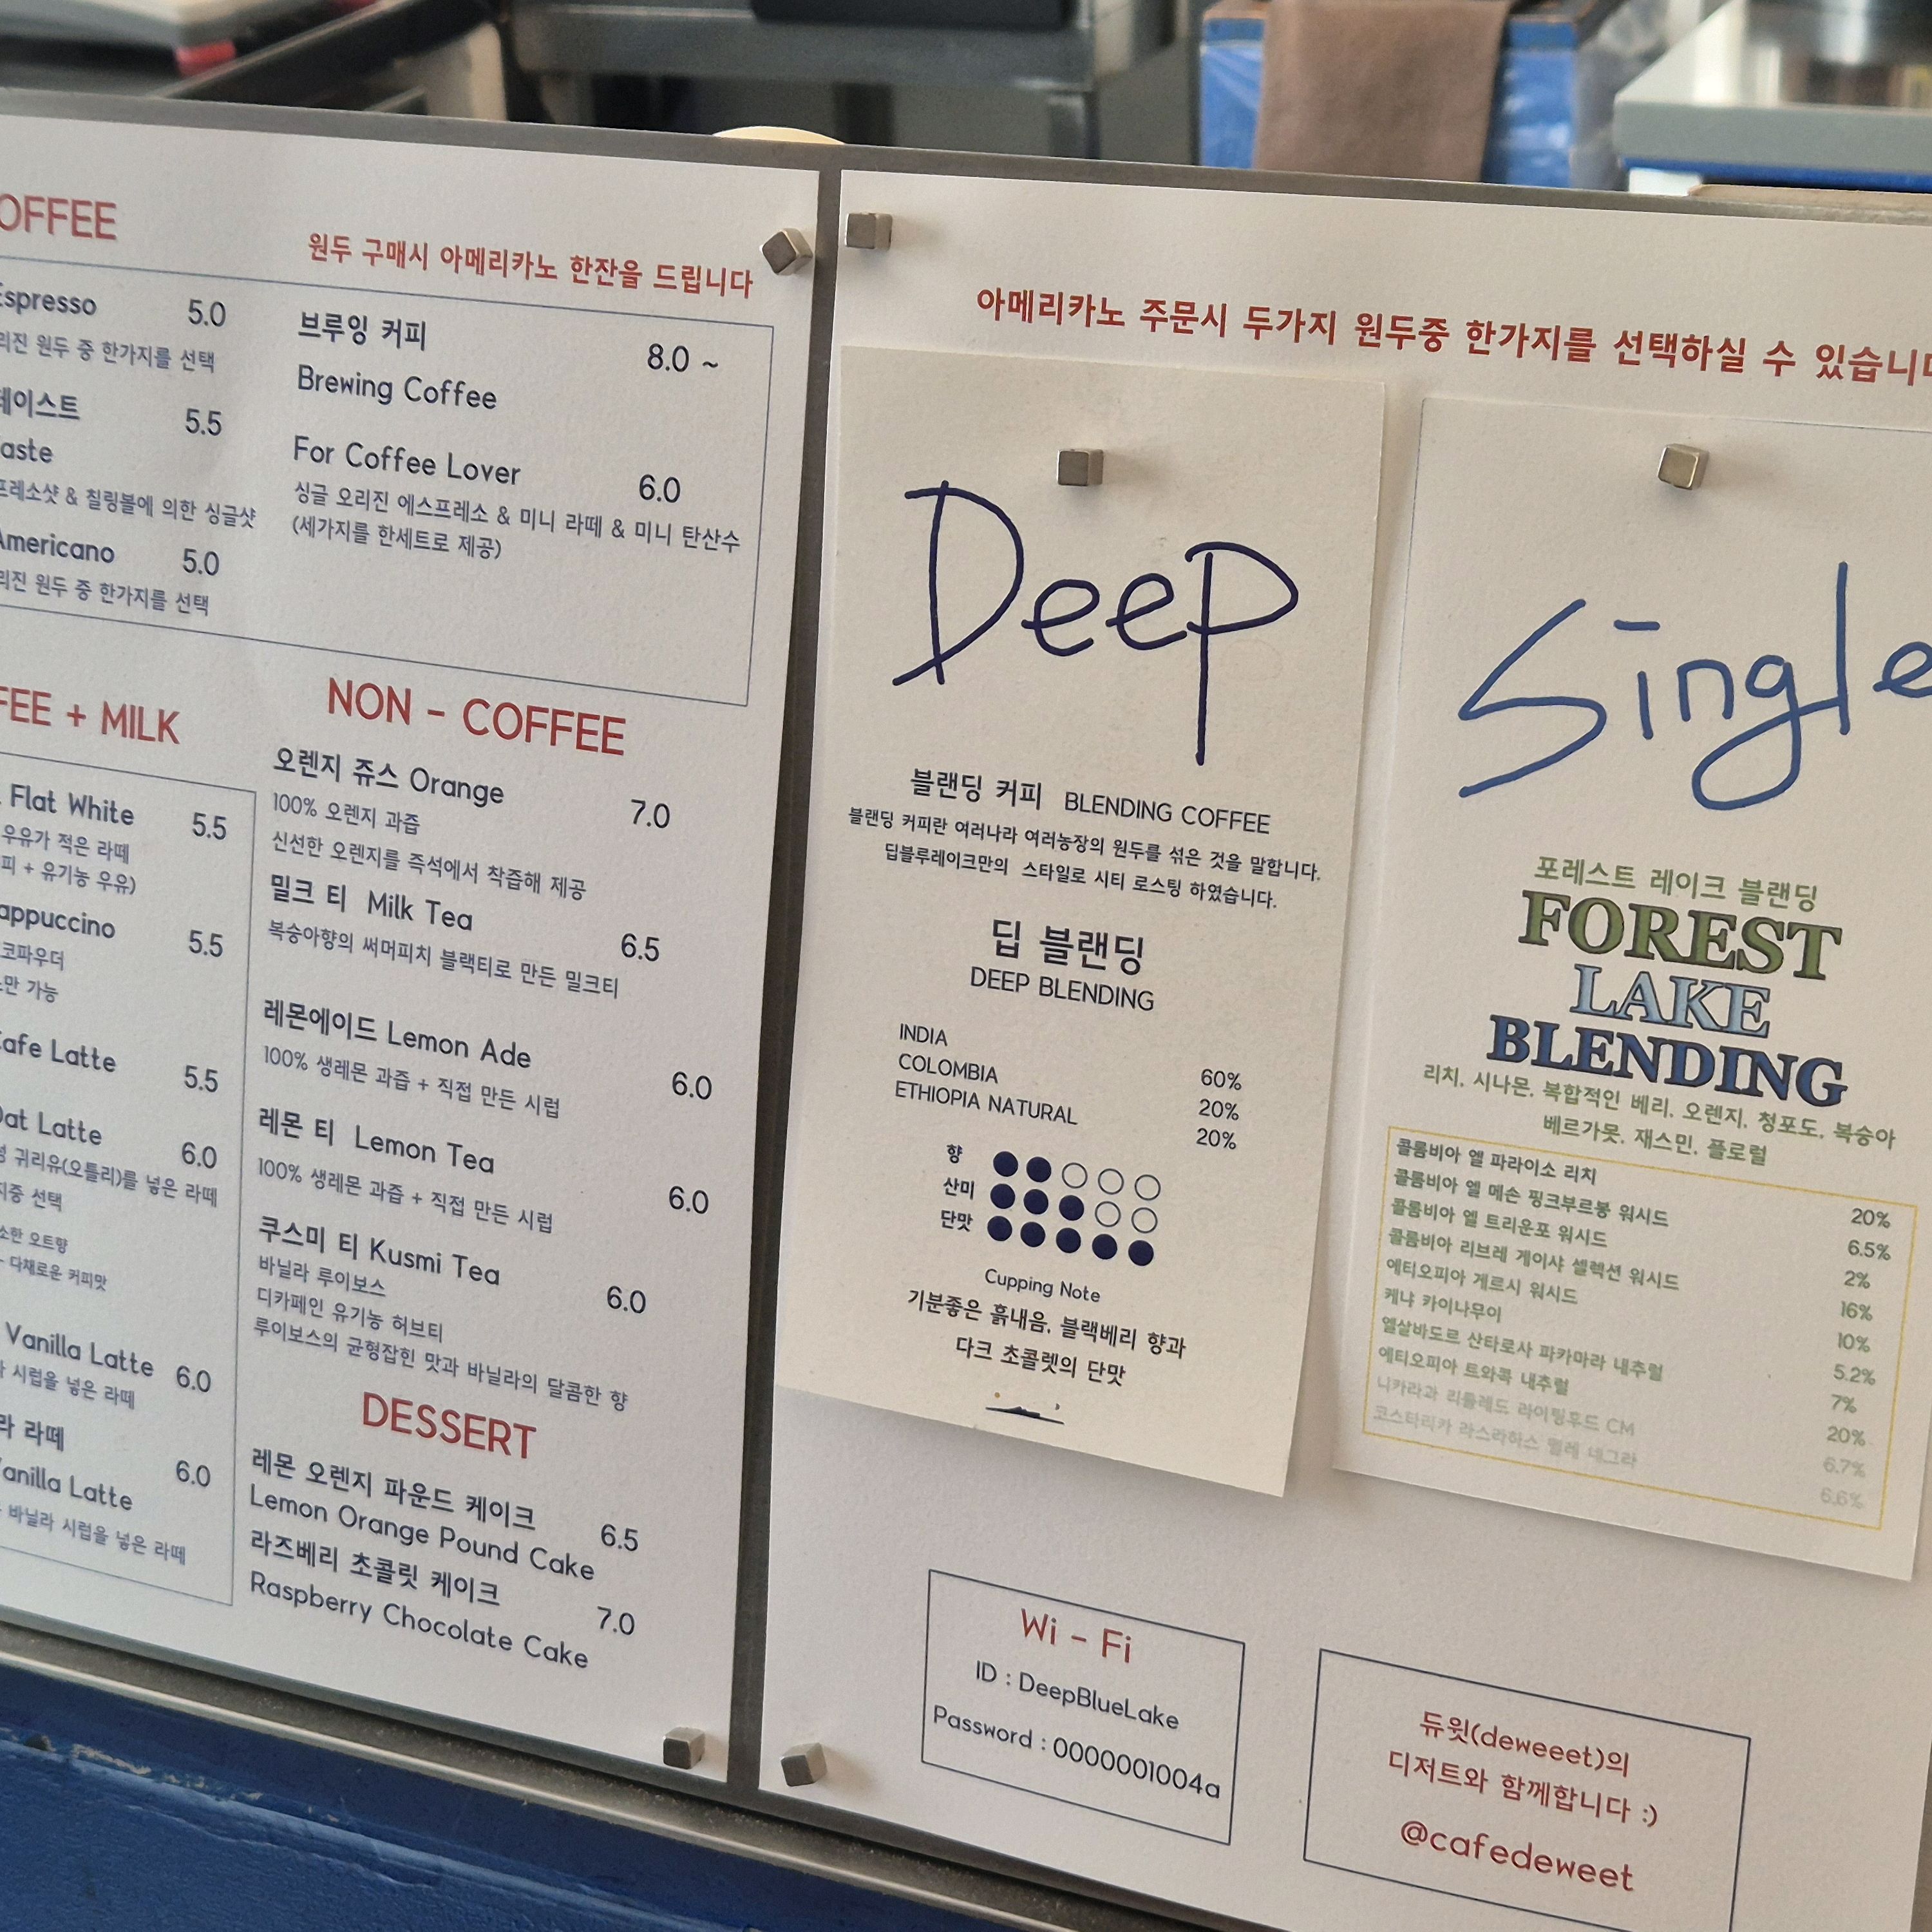 OFFEE
원두 구매시 아메리카노 한잔을 드립니다
Espresso 5.0
리진 원두 중 한가지를 선택
테이스트 5.5
aste
프레소샷 & 칠링볼에 의한 싱글샷
Americano 5.0
리진 원두 중 한가지를 선택
브루잉 커피 8.0 ~
Brewing Coffee
For Coffee Lover 6.0
싱글 오리진 에스프레소 & 미니 라떼 & 미니 탄산수
(세가지를 한세트로 제공)
FEE + MILK
Flat White 5.5
우유가 적은 라떼
피 + 유기능 우유)
appuccino 5.5
코파우더
만 가능
Cafe Latte 5.5
Oat Latte 6.0
귀리유(오틀리)를 넣은 라떼
지중 선택
소한 오트향
- 다채로운 커피맛
Vanilla Latte 6.0
시럽을 넣은 라떼
라 라떼 6.0
Vanilla Latte
바닐라 시럽을 넣은 라떼
NON - COFFEE
오렌지 쥬스 Orange 7.0
100% 오렌지 과즙
신선한 오렌지를 즉석에서 착즙해 제공
밀크 티 Milk Tea 6.5
복숭아향의 써머피치 블랙티로 만든 밀크티
레몬에이드 Lemon Ade 6.0
100% 생레몬 과즙 + 직접 만든 시럽
레몬 티 Lemon Tea 6.0
100% 생레몬 과즙 + 직접 만든 시럽
쿠스미 티 Kusmi Tea 6.0
바닐라 루이보스
디카페인 유기능 허브티
루이보스의 균형잡힌 맛과 바닐라의 달콤한 향
DESSERT
레몬 오렌지 파운드 케이크 6.5
Lemon Orange Pound Cake
라즈베리 초콜릿 케이크 7.0
Raspberry Chocolate Cake
아메리카노 주문시 두가지 원두중 한가지를 선택하실 수 있습니다
Deep
블랜딩 커피 BLENDING COFFEE
블랜딩 커피란 여러나라 여러농장의 원두를 섞은 것을 말합니다.
딥블루레이크만의 스타일로 시티 로스팅 하였습니다.
딥 블랜딩
DEEP BLENDING
INDIA 60%
COLOMBIA 20%
ETHIOPIA NATURAL 20%
향
산미
단맛
Cupping Note
기분좋은 흙내음, 블랙베리 향과
다크 초콜렛의 단맛
Single
포레스트 레이크 블랜딩
FOREST
LAKE
BLENDING
리치, 시나몬, 복합적인 베리, 오렌지, 청포도, 복숭아
베르가못, 재스민, 플로럴
콜롬비아 엘 파라이소 리치 20%
콜롬비아 엘 메손 핑크부르봉 워시드 6.5%
콜롬비아 엘 트리운포 워시드 2%
콜롬비아 리브레 게이샤 셀렉션 워시드 16%
에티오피아 게르시 워시드 10%
케냐 카이나무이 5.2%
엘살바도르 산타로사 파카마라 내추럴 7%
에티오피아 트와콕 내추럴 20%
니카라과 리틀레드 라이딩후드 CM 6.7%
코스타리카 라스라하스 펄레 네그라 6.6%
Wi - Fi
ID : DeepBlueLake
Password : 0000001004a
듀윗(deweeet)의
디저트와 함께합니다 :)
@cafedeweet